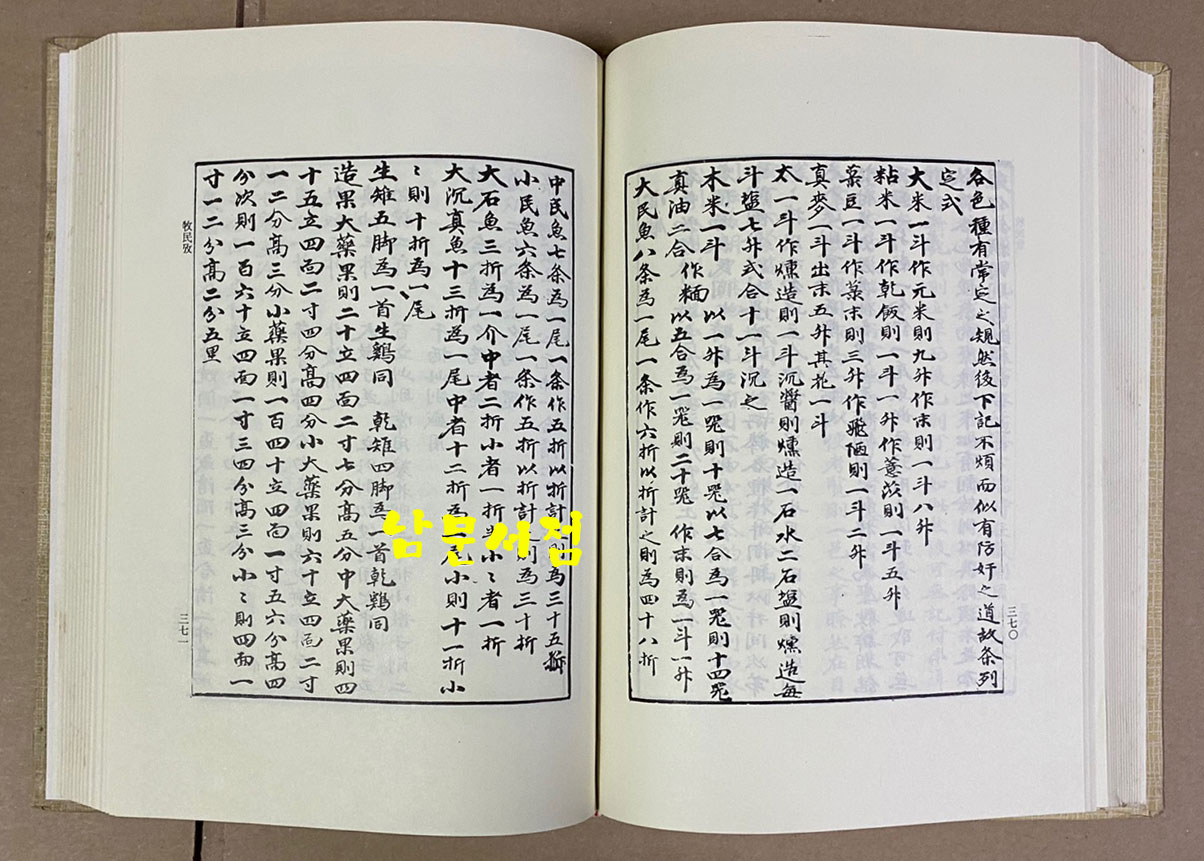 各色種有常定之規然後下記不煩而似有防奸之道故条列
定式
大米一斗作元米則九升作末則一斗八升
粘米一斗作乾飯則一斗一升作薏苡則一斗五升
菉豆一斗作菉末則三升作飛陋則一斗二升
真麥一斗出末五升其花一斗
太一斗作燻造則一斗沉醬則燻造一石水二石塩則燻造每
斗塩七升式合十一斗沉之
木米一斗 作麵 以一升為一器則十器以七合為一器則十四器
真油二合 作麵以五合為一器則二十器 作末則為一斗一升
大民魚八条為一尾一条作六折以折計之則為四十八折
三七〇
中民魚七条為一尾一条作五折以折計之則為三十五折
小民魚六条為一尾一条作五折以折計之則為三十折
大石魚三折為一介中者二折小者一折半小々者一折
大沉真魚十三折為一尾中者十二折為一尾小則十一折小
々則十折為一尾
生雉五脚為一首生鷄同 乾雉四脚為一首乾鷄同
造果大薬果則二十立四面二寸七分高五分中大薬果則四
十五立四面二寸四分高四分小大薬果則六十立四面二寸
一二分高三分小薬果則一百四十立四面一寸五六分高四
分次則一百六十立四面一寸三四分高三分小々則四面一
寸一二分高二分五里
牧民攷
三七一
남문서점